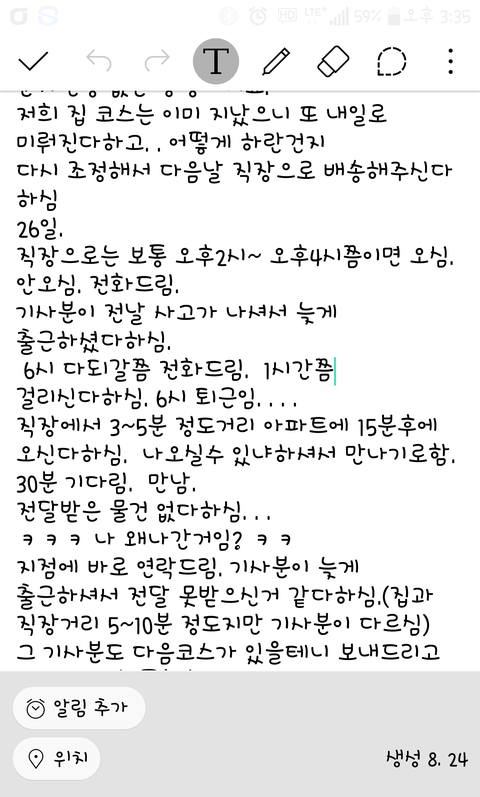 HD LTE+ 59% 오후 3:35
T
저희 집 코스는 이미 지났으니 또 내일로
미뤄진다하고. . 어떻게 하란건지
다시 조정해서 다음날 직장으로 배송해주신다
하심
26일.
직장으로는 보통 오후2시~ 오후4시쯤이면 오심.
안오심. 전화드림.
기사분이 전날 사고가 나셔서 늦게
출근하셨다하심.
6시 다되갈쯤 전화드림. 1시간쯤
걸리신다하심. 6시 퇴근임. . . .
직장에서 3~5분 정도거리 아파트에 15분후에
오신다하심. 나오실수 있냐하셔서 만나기로함.
30분 기다림. 만남.
전달받은 물건 없다하심. . .
ㅋ ㅋ ㅋ 나 왜나간거임? ㅋ ㅋ
지점에 바로 연락드림. 기사분이 늦게
출근하셔서 전달 못받으신거 같다하심.(집과
직장거리 5~10분 정도지만 기사분이 다르심)
그 기사분도 다음코스가 있을테니 보내드리고
알림 추가
위치
생성 8. 24